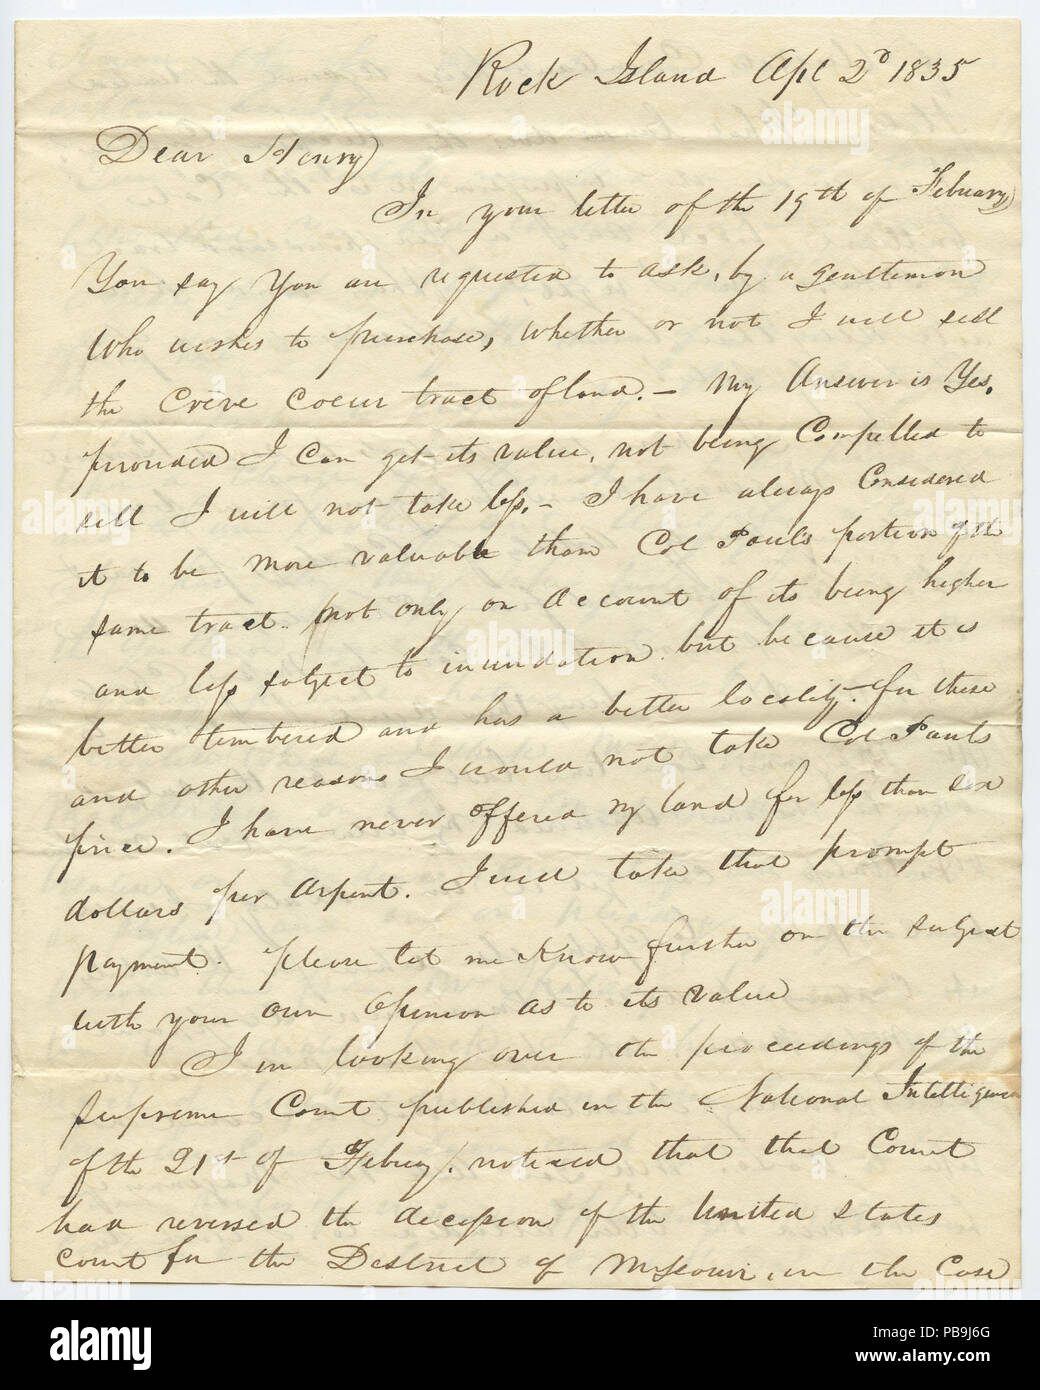 Rock Island Apl 2d 1835
Dear Henry
In your letter of the 19th of Febuary
You say You are requested to ask, by a gentlemon
Who wishes to purchase, whether or not I will sell
the Creve Coeur tract of land. – My Answer is Yes,
provided I Can get its value, not being Compelled to
sell I will not take less. – I have always Considered
it to be more valuable than Col Pauls portion of the
same tract. not only on account of its being higher
and less subject to inundation but because it is
better timbered and has a better locality. For these
and other reasons I would not take Col Pauls
price. I have never offered my land for less than six
dollars per arpent. I will take that prompt
payment. please let me Know further on the subject
with your own opinion as to its value
I in looking over the proceedings of the
Supreme Court published in the National Intelligencer
of the 21st of Febuy, noticed that that Court
had reversed the decession of the United States
Court for the Destrict of Missouri, in the Case
alamy
alamy
alamy
alamy
alamy
alamy
alamy
alamy
alamy
Image ID: PB9J6G
www.alamy.com